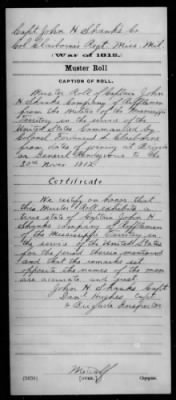 Capt John H Shanks Co
Col Claiborne's Regt. Miss. Mil.
(War of 1812.)
Muster Roll
CAPTION OF ROLL.
Muster Roll of Captain John
H Shanks Company of Riflemen
from the Militia of the Mississippi
Territory in the service of the
United States Commanded by
Colonel Ferdinand L Claiborne
from dates of joining at Brigade
or General Rendezvous to the
30th Novr 1812
Certificate
We certify on honor that
this Muster Roll exhibits a
true state of Captain John H
Shanks Company of Riflemen
of the Mississippi Territory in
the service of the United States
for the period therein mentioned
and that the remarks set
opposite the names of the men
are accurate and just
John H Shanks Capt
Danl Hughes Capt
Brigade Inspector
Metcalf
(OVER.) Copyist.